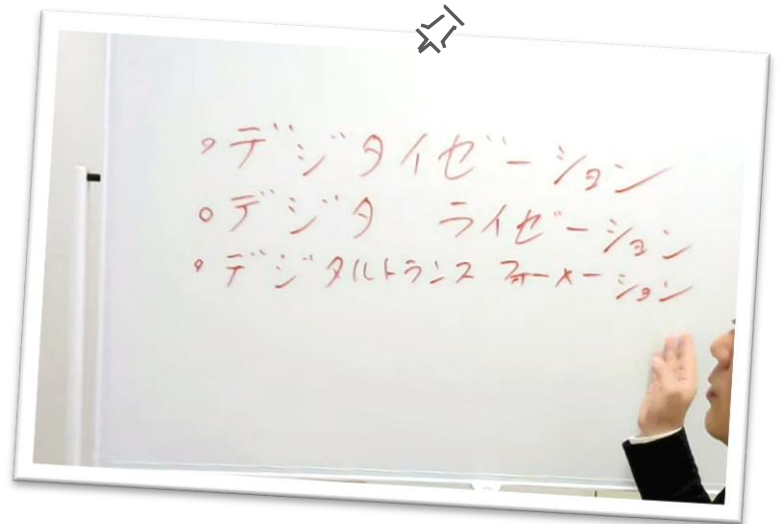 ○デジタイゼーション
○デジタ ライゼーション
○デジタルトランスフォーメーション